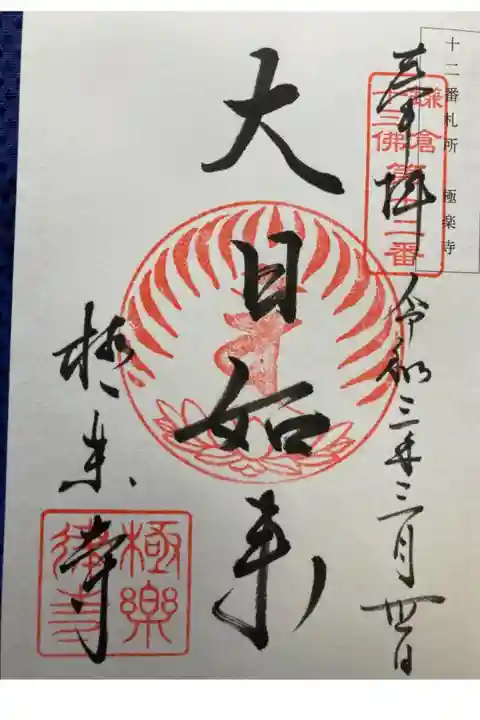 十二番札所　極楽寺
鎌倉
十三佛第十二番
奉拝
令和三年三月
大日如来
極楽寺
極樂
律寺